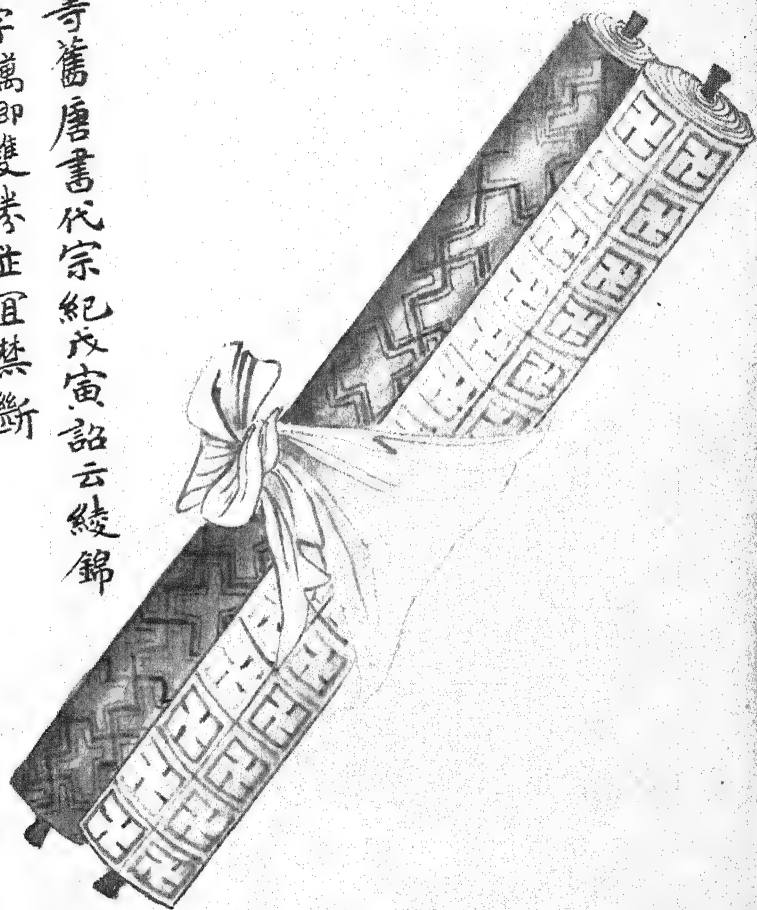 寺舊唐書代宗紀戊寅詔云綾錦
字萬即雙勝並宜禁斷